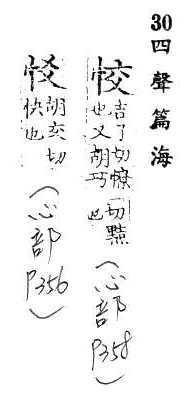 30四聲篇海
恔 吉了切憭
也又胡巧切黠
也
(心部
P358)
㤊 胡交切
快也
(心部
P356)